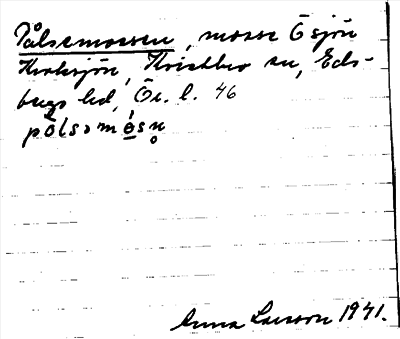 Pålsemossen, mosse Ö sjön
Kroksjön, Kristbro sn, Eds-
bergs hd, Ör. l. 46
pålsəmósn̥
Anna Larsson 1941.